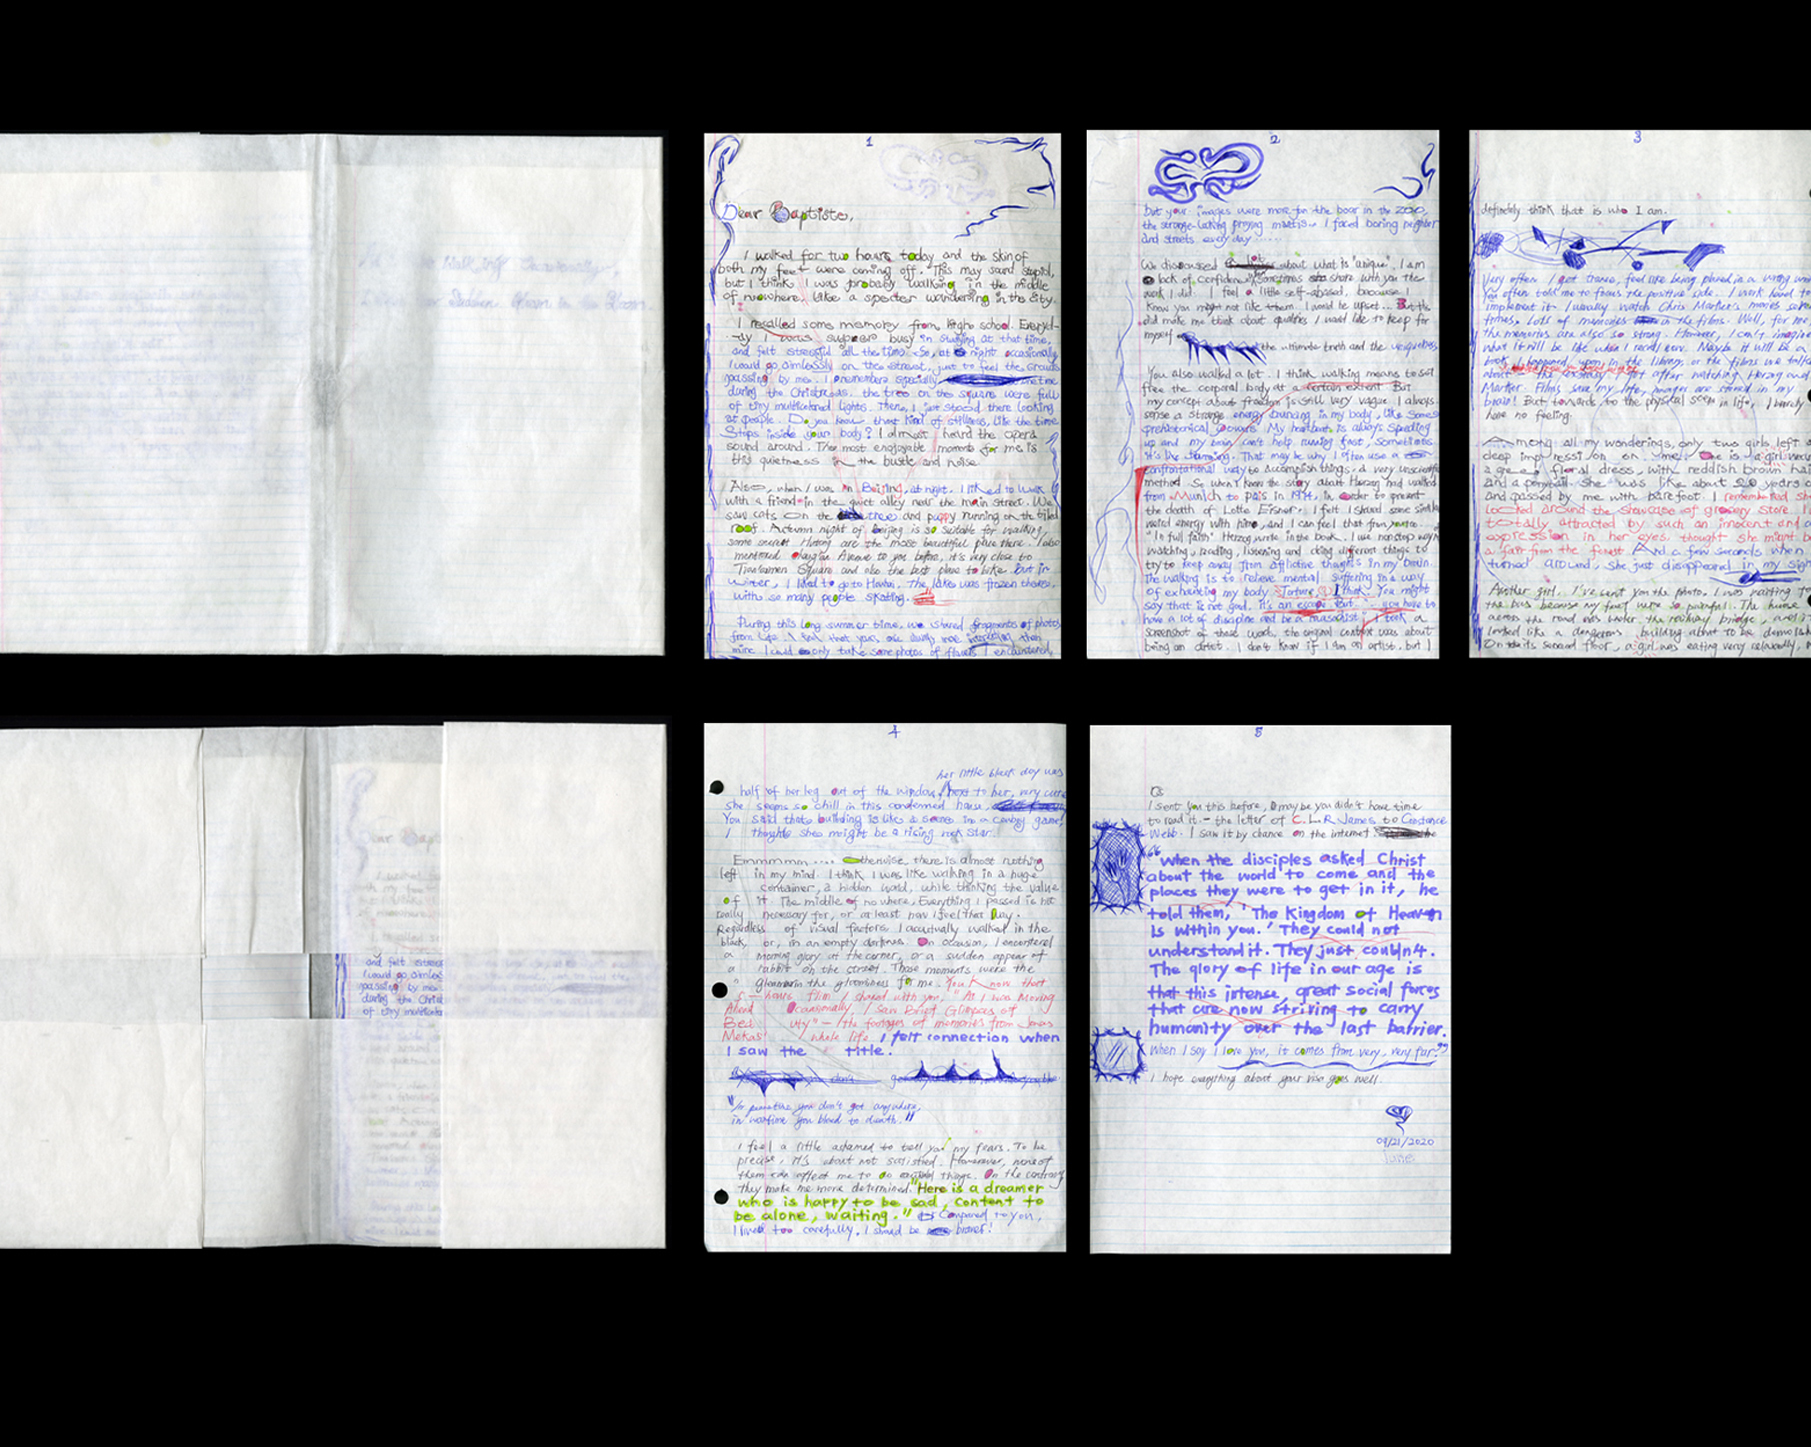 1
Dear Baptiste,
I walked for two hours today and the skin of
both my feet were coming off. This may sound stupid,
but I think I was probably walking in the middle
of nowhere, like a specter wandering in the city.
I recalled some memory from high school. Everyd-
-ay I was supper busy in studying at that time,
and felt stressful all the time. So, at night occasionally
I would go aimlessly on the street, just to feel the crowds
passing by me. I remembers especially one time
during the Christmas. the tree on the square were full
of tiny multicolored lights. There, I just stood there looking
at people. Do you know that kind of stillness, like the time
stops inside your body? I almost heard the opera
sound around. The most enjoyable moments for me is
this quietness in the bustle and noise.
Also, when I was in Beijing, at night. I liked to walk
with a friend in the quiet alley near the main street. We
saw cats on the tree and puppy running on the tiled
roof. Autumn night of Beijing is so suitable for walking,
some secret Hutong are the most beautiful place there. I also
mentioned Chang'an Avenue to you before, it's very close to
Tiananmen Square and also the best place to bike. But in
winter, I liked to go to Houhai. The lakes was frozen there,
with so many people skating.
During this long summer time, we shared fragments of photos
from life. I find that yours are always more interesting than
mine. I could only take some photos of flowers I encountered,
2
but your images were more fun the boar in the zoo,
the strange-looking praying mantis. I faced boring neighbor
and streets every day ......
We discussed about what is "unique". I am
lack of confidence sometimes share with you the
work I did. I feel a little self-abased, because I
know you might not like them I would be upset. But this
did make me think about qualities I would like to keep for
myself the ultimate truth and the uniqueness
You also walked a lot. I think walking means to set
free the corporal body at a certain extent. But
my concept about freedom is still very vague. I always
sense a strange energy bouncing in my body, like some
prehistorical powers. My heartbeat is always speeding
up and my brain can't help running fast, sometimes
it's like burning. That may be why I often use a
confrontational way to accomplish things. a very unscientific
method. So when I know the story about Herzog had walked
from Munich to Paris in 1974, in order to prevent
the death of Lotte Eisner. I felt I shared some similar
weird energy with him, and I can feel that from yours.
"In full faith" Herzog wrote in the book. I use nonstop ways
watching, reading, listening and doing different things to
try to keep away from afflictive thoughts in my brain.
The walking is to relieve mental suffering in a way
of exhausting my body. Torture, I think. You might
say that is not god. it's an escape. But "... you have to
have a lot of discipline and be a masochist" I took a
screenshot of these words, the original context was about
being an artist. I don't know if I am an artist, but I
3
definitely think that is who I am.
Very often, I get trance, feel like being placed in a wrong
You often told me to focus the positive side. I work hard to
implement it. I usually watch Chris Marker's movies
times, lots of memories in the films. Well, for me
the memories are also so strong. However, I can't imagine
what it will be like when I really Maybe it will be a
book I happened upon in the library, or the films we talked
about the ecstasy I got after watching Herzog and
Marker. Films save my life, images are stored in my
brain! But towards to the physical seen in life, I barely
have no feeling.
Among all my wonderings, only two girls left a
deep impression on me. One is a girl
a green floral dress, with reddish brown hair
and a ponytail. She was like about 20 years
and passed by me with barefoot. I remembered she
looked around the showcase of grocery store. I
totally attracted by such an innocent and
expression in her eyes, thought she might be
a fair from the forest. And a few seconds when
turned around, she just disappeared in my sight
Another girl, I've sent you the photo. I was waiting for
the bus because my feet were so painful. The house
across the road was under the railway bridge,
looked like a dangerous building about to be demolished
On the its second floor, a girl was eating very relaxedly,
and felt stress
I would go aimless
passing by me.
during the Christ
of tiny multicolore
4
her little black dog was
half of her leg out of the window, next to her, very cute
she seems so chill in this condemned house,
You said that building is like a scene in a cowboy game
I thought she might be a rising rock star.
Emmmmm .... Otherwise, there is almost nothing
left in my mind. I think I was like walking in a huge
container, a hidden world, while thinking the value
of it. The middle of no where, Everything I passed is not
really necessary for, or at least now I feel that way.
Regardless of visual factors, I acutually walked in the
black, or, in an empty darkness. On occasion, I encontered
a morning glory at the corner, or a sudden appear of
a rabbit on the street. Those moments were the
gleam in the gloominess for me. You know that
5-hours film I shared with you, "As I was Moving
Ahead Ocassionally, I saw Brief Glimpses of
Beauty" - the footages of memories from Jonas
Mekas' whole life. I felt connection when
I saw the title.
"In peacetime you don't get anywhere,
in wartime you bleed to death."
I feel a little ashamed to tell you my fears. To be
precise, it's about not satisfied. However, none of
them can affect me to do things. On the contrary
they make me more determined. "Here is a dreamer
who is happy to be sad, content to
be alone, waiting." Compared to you,
I lived too carefully. I should be braver!
5
I sent you this before, maybe you didn't have time
to read it - the letter of C.L.R James to Constance
Webb. I saw it by chance on the internet.
"when the disciples asked Christ
about the world to come and the
places they were to get in it, he
told them, 'The Kingdom of Heaven
is within you.' They could not
understand it. They just couldn't.
The glory of life in our age is
that this intense, great social forces
that are now striving to carry
humanity over the last barrier.
When I say I love you, it comes from very, very far."
I hope everything about your visa goes well.
09/21/2020
June